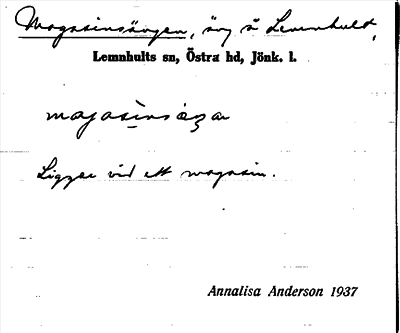 Magasinsängen, äng å Lemnhult,
Lemnhults sn, Östra hd, Jönk. l.
Ligger vid ett magasin.
Annalisa Anderson 1937